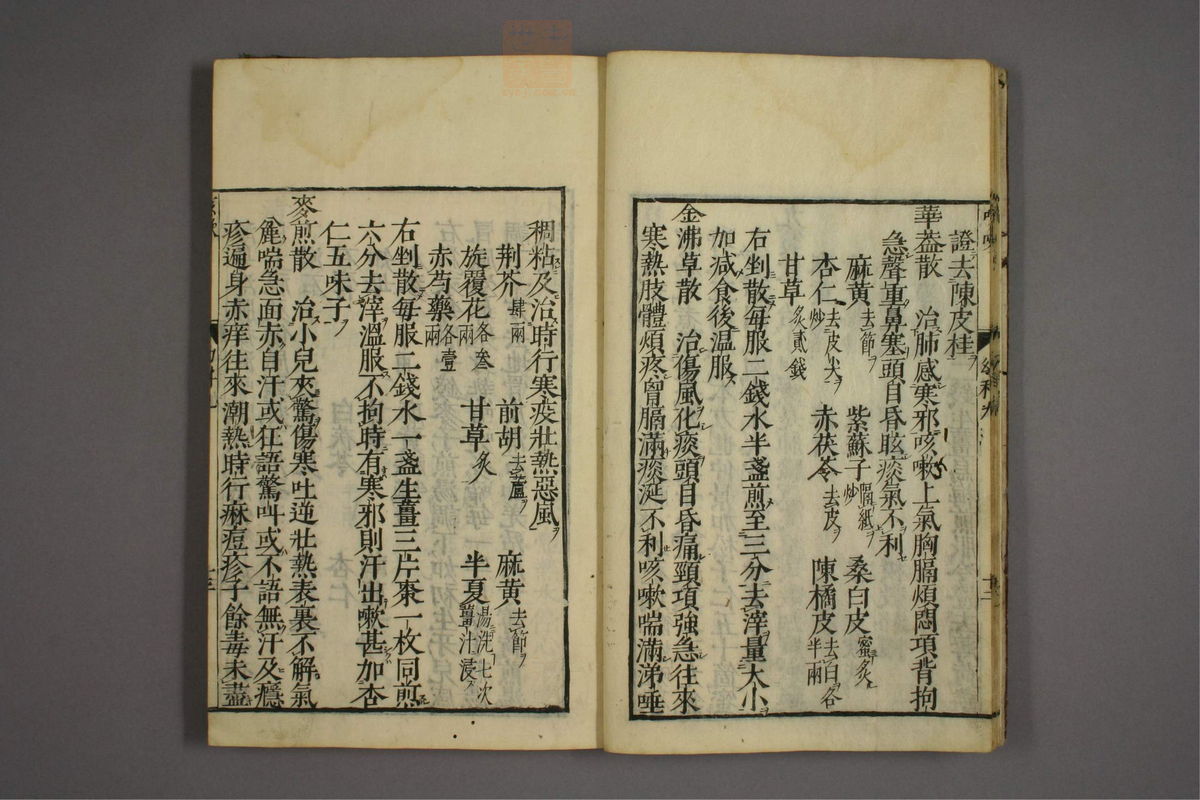 證去陳皮桂
華蓋散 治肺感寒邪咳嗽上氣胸膈煩悶項背拘
急聲重鼻塞頭目昏眩痰氣不利
麻黃去節 紫蘇子隔紙炒 桑白皮蜜炙
杏仁去皮尖炒 赤茯苓去皮 陳橘皮去白各半兩
甘草炙貳錢
右剉散每服二錢水半盞煎至三分去滓量大小
加减食後温服
金沸草散 治傷風化痰頭目昏痛頸項強急往來
寒熱肢體煩疼胷膈滿痰涎不利咳嗽喘滿涕唾
稠粘及治時行寒疫壯熱惡風
荆芥肆兩 前胡去蘆 麻黃去節
旋覆花各叁兩 甘草炙 半夏湯洗七次薑汁浸
赤芍藥各壹兩
右剉散每服二錢水一盞生薑三片棗一枚同煎
六分去滓溫服不拘時有寒邪則汗出嗽甚加杏
仁五味子
麥煎散 治小兒夾驚傷寒吐逆壯熱表裏不解氣
麄喘急面赤自汗或狂語驚叫或不語無汗及癮
疹遍身赤痒往來潮熱時行痳痘疹子餘毒未盡